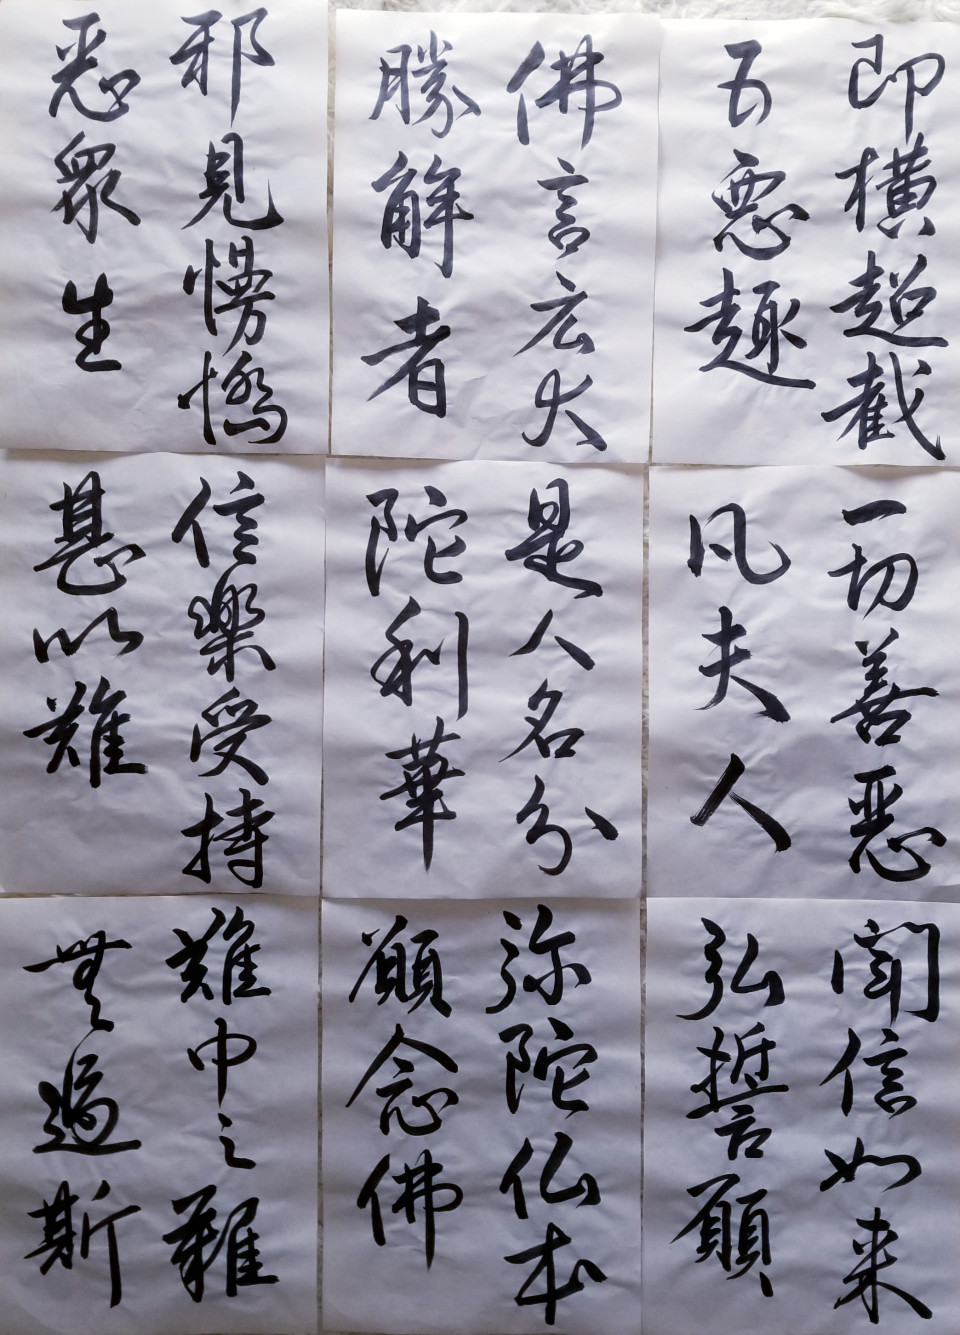 即横超截
五悪趣
一切善悪
凡夫人
聞信如来
弘誓願
佛言広大
勝解者
是人名分
陀利華
弥陀仏本
願念佛
邪見慢憍
悪衆生
信樂受持
甚以難
難中之難
無過斯